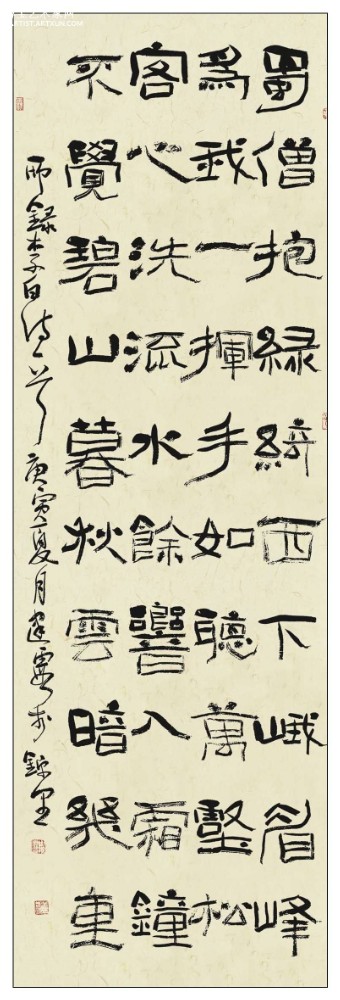 蜀僧抱綠綺西下峨眉峰
爲我一揮手如聽萬壑松
客心洗流水餘響入霜鐘
不覺碧山暮秋雲暗幾重
錄李白詩一首庚寅夏月建霖於